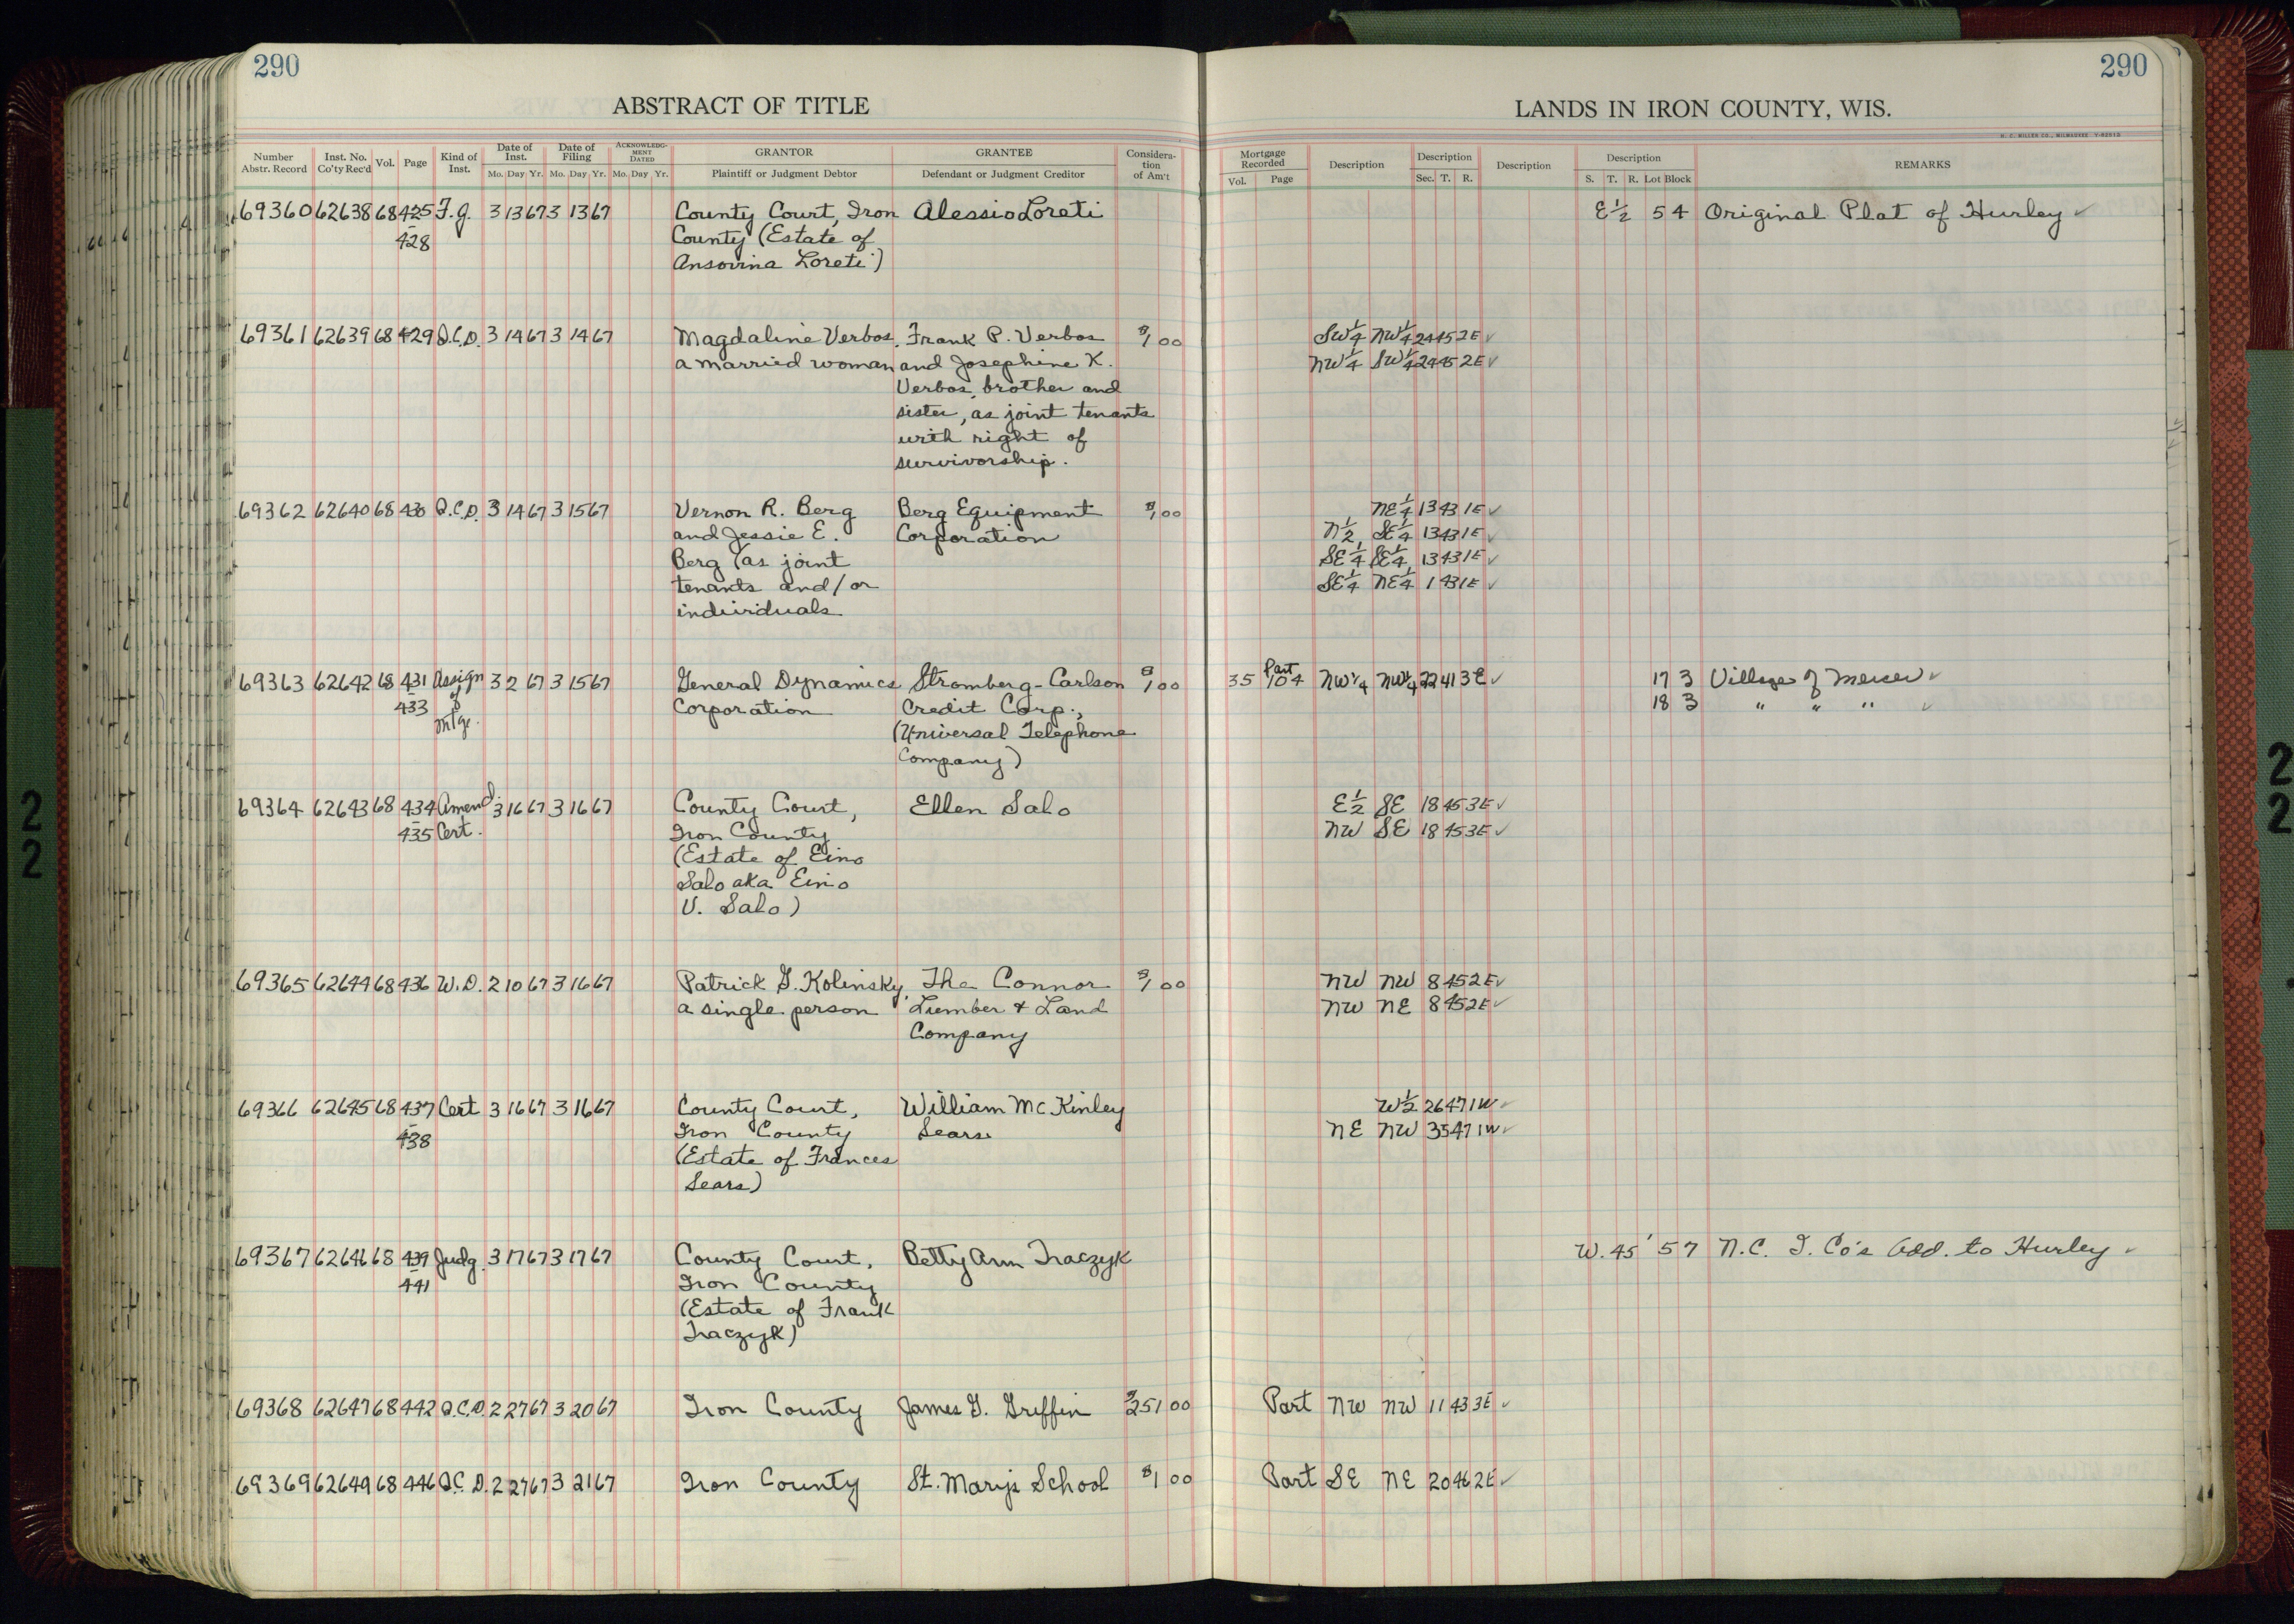 290
290
ABSTRACT OF TITLE
LANDS IN IRON COUNTY, WIS.
H. C. MILLER CO., MILWAUKEE
Number Abstr. Record Inst. No. Co'ty Rec'd Vol. Page Kind of Inst. Date of Inst. Mo. Day Yr. Date of Filing Mo. Day Yr. ACKNOWLEDGMENT DATED Mo. Day Yr. GRANTOR Plaintiff or Judgment Debtor GRANTEE Defendant or Judgment Creditor Consideration of Am't
Mortgage Recorded Vol. Page Description Description Sec. T. R. Description Description S. T. R. Lot Block REMARKS
69360 62638 68 425 F.J. 3 13 67 3 13 67 County Court, Iron Alessio Loreti E½ 5 4 Original Plat of Hurley ✓
428 County (Estate of
Ansovina Loreti)
69361 62639 68 429 Q.C.D. 3 14 67 3 14 67 Magdaline Verbos, Frank P. Verbos $1 00 SW¼ NW¼ 24 45 2E ✓
a married woman and Josephine K. NW¼ SW¼ 24 45 2E ✓
Verbos, brother and
sister, as joint tenants
with right of
survivorship.
69362 62640 68 430 Q.C.D. 3 14 67 3 15 67 Vernon R. Berg Berg Equipment $1 00 NE¼ 13 43 1E ✓
and Jessie E. Corporation N½ SE¼ 13 43 1E ✓
Berg (as joint SE¼ SE¼ 13 43 1E ✓
tenants and/or SE¼ NE¼ 1 43 1E ✓
individuals
69363 62642 68 431 Assign 3 2 67 3 15 67 General Dynamics Stromberg-Carlson $1 00 35 104 Part NW¼ NW¼ 22 41 3E ✓ 17 3 Village of Mercer ✓
433 of Mtge. Corporation Credit Corp., 18 3 " " " ✓
(Universal Telephone
Company)
69364 62643 68 434 Amend. 3 16 67 3 16 67 County Court, Ellen Salo E½ SE 18 45 3E ✓
435 Cert. Iron County NW SE 18 45 3E ✓
(Estate of Eino
Salo aka Eino
V. Salo)
69365 62644 68 436 W.D. 2 10 67 3 16 67 Patrick G. Kolinsky, The Connor $1 00 NW NW 8 45 2E ✓
a single person Lumber & Land NW NE 8 45 2E ✓
Company
69366 62645 68 437 Cert 3 16 67 3 16 67 County Court, William McKinley W½ 26 47 1W ✓
438 Iron County Sears NE NW 35 47 1W ✓
(Estate of Frances
Sears)
69367 62646 68 439 Judg. 3 17 67 3 17 67 County Court, Betty Ann Traczyk W. 45' 5 7 N.C. I. Co's Add. to Hurley ✓
441 Iron County
(Estate of Frank
Traczyk)
69368 62647 68 442 Q.C.D. 2 27 67 3 20 67 Iron County James G. Griffin $251 00 Part NW NW 11 43 3E ✓
69369 62649 68 446 Q.C.D. 2 27 67 3 21 67 Iron County St. Mary's School $1 00 Part SE NE 20 46 2E ✓
22
22